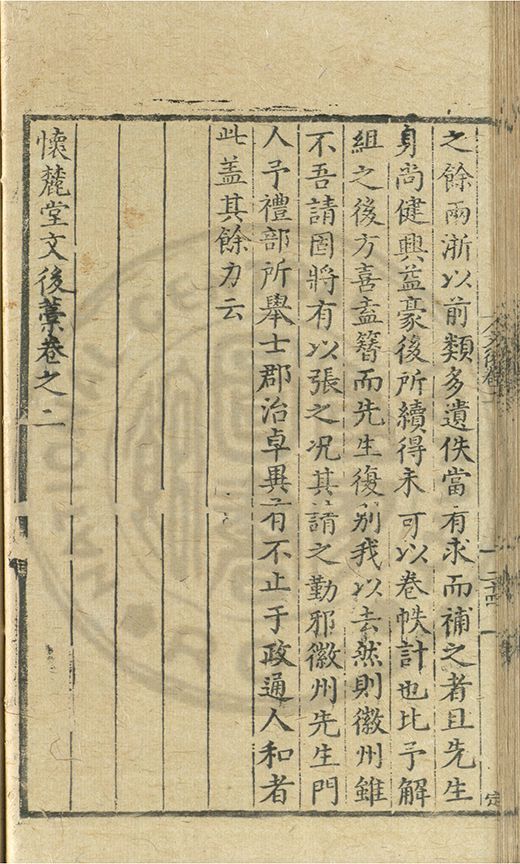 之餘兩浙以前類多遺佚當有求而補之者且先生
身尚健興益豪後所續得未可以卷帙計也比予解
組之後方喜盍簪而先生復別我以去然則徽州雖
不吾請固將有以張之况其請之勤邪徽州先生門
人予禮部所舉士郡治卓異有不止于政通人和者
此盖其餘力云
懷麓堂文後藁卷之二